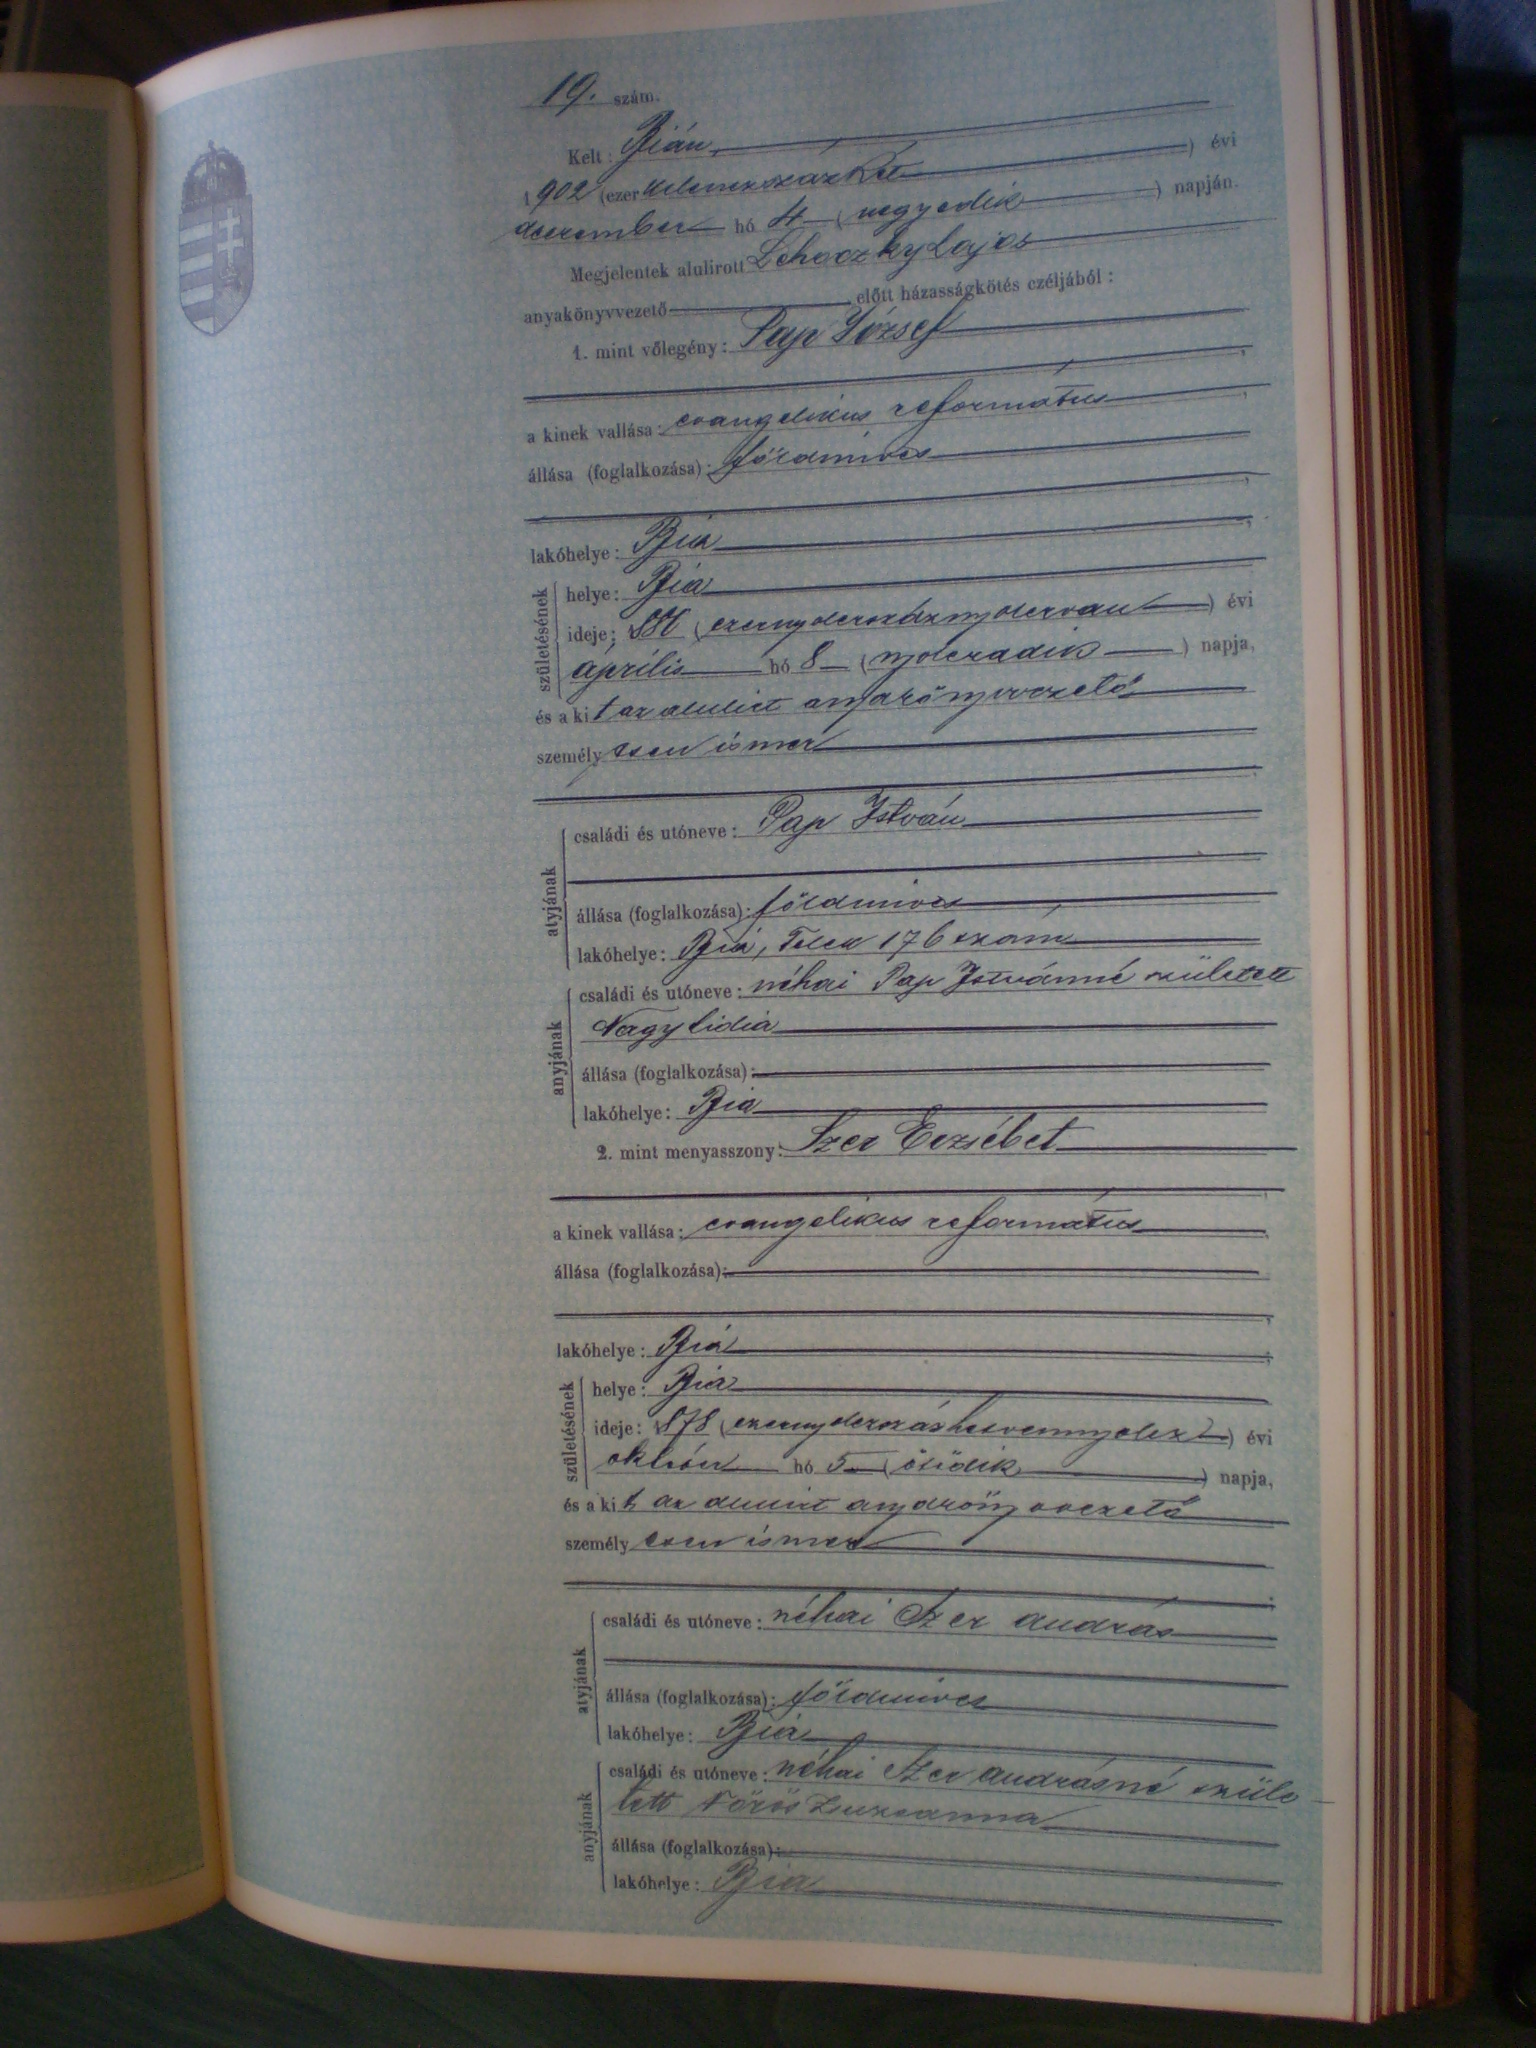 19. szám.
Kelt: Bián,
1902 (ezer kilenczszázkét) évi
deczember hó 4 (negyedik) napján.
Megjelentek alulirott Lehoczky Lajos
anyakönyvvezető előtt házasságkötés czéljából:
1. mint vőlegény: Pap József
a kinek vallása: evangelikus református
állása (foglalkozása): földmives
lakóhelye: Bia
születésének
helye: Bia
ideje: (ezernyolczszáznyolczvan) évi
április hó 8 (nyolczadik) napja,
és a kit az alulirt anyakönyvvezető
személyesen ismer
atyjának
családi és utóneve: Pap István
állása (foglalkozása): földmives
lakóhelye: Bia, 176 szám
anyjának
családi és utóneve: néhai Pap Istvánné született
Nagy Lidia
állása (foglalkozása):
lakóhelye: Bia
2. mint menyasszony: Szer Erzsébet
a kinek vallása: evangelikus református
állása (foglalkozása):
lakóhelye: Bia
születésének
helye: Bia
ideje: 1878 (ezernyolczszázhetvennyolcz) évi
október hó 5 (ötödik) napja,
és a kit az alulirt anyakönyvvezető
személyesen ismer
atyjának
családi és utóneve: néhai Szer András
állása (foglalkozása): földmives
lakóhelye: Bia
anyjának
családi és utóneve: néhai Szer Andrásné szüle-
tett Vörös Zsuzsanna
állása (foglalkozása):
lakóhelye: Bia